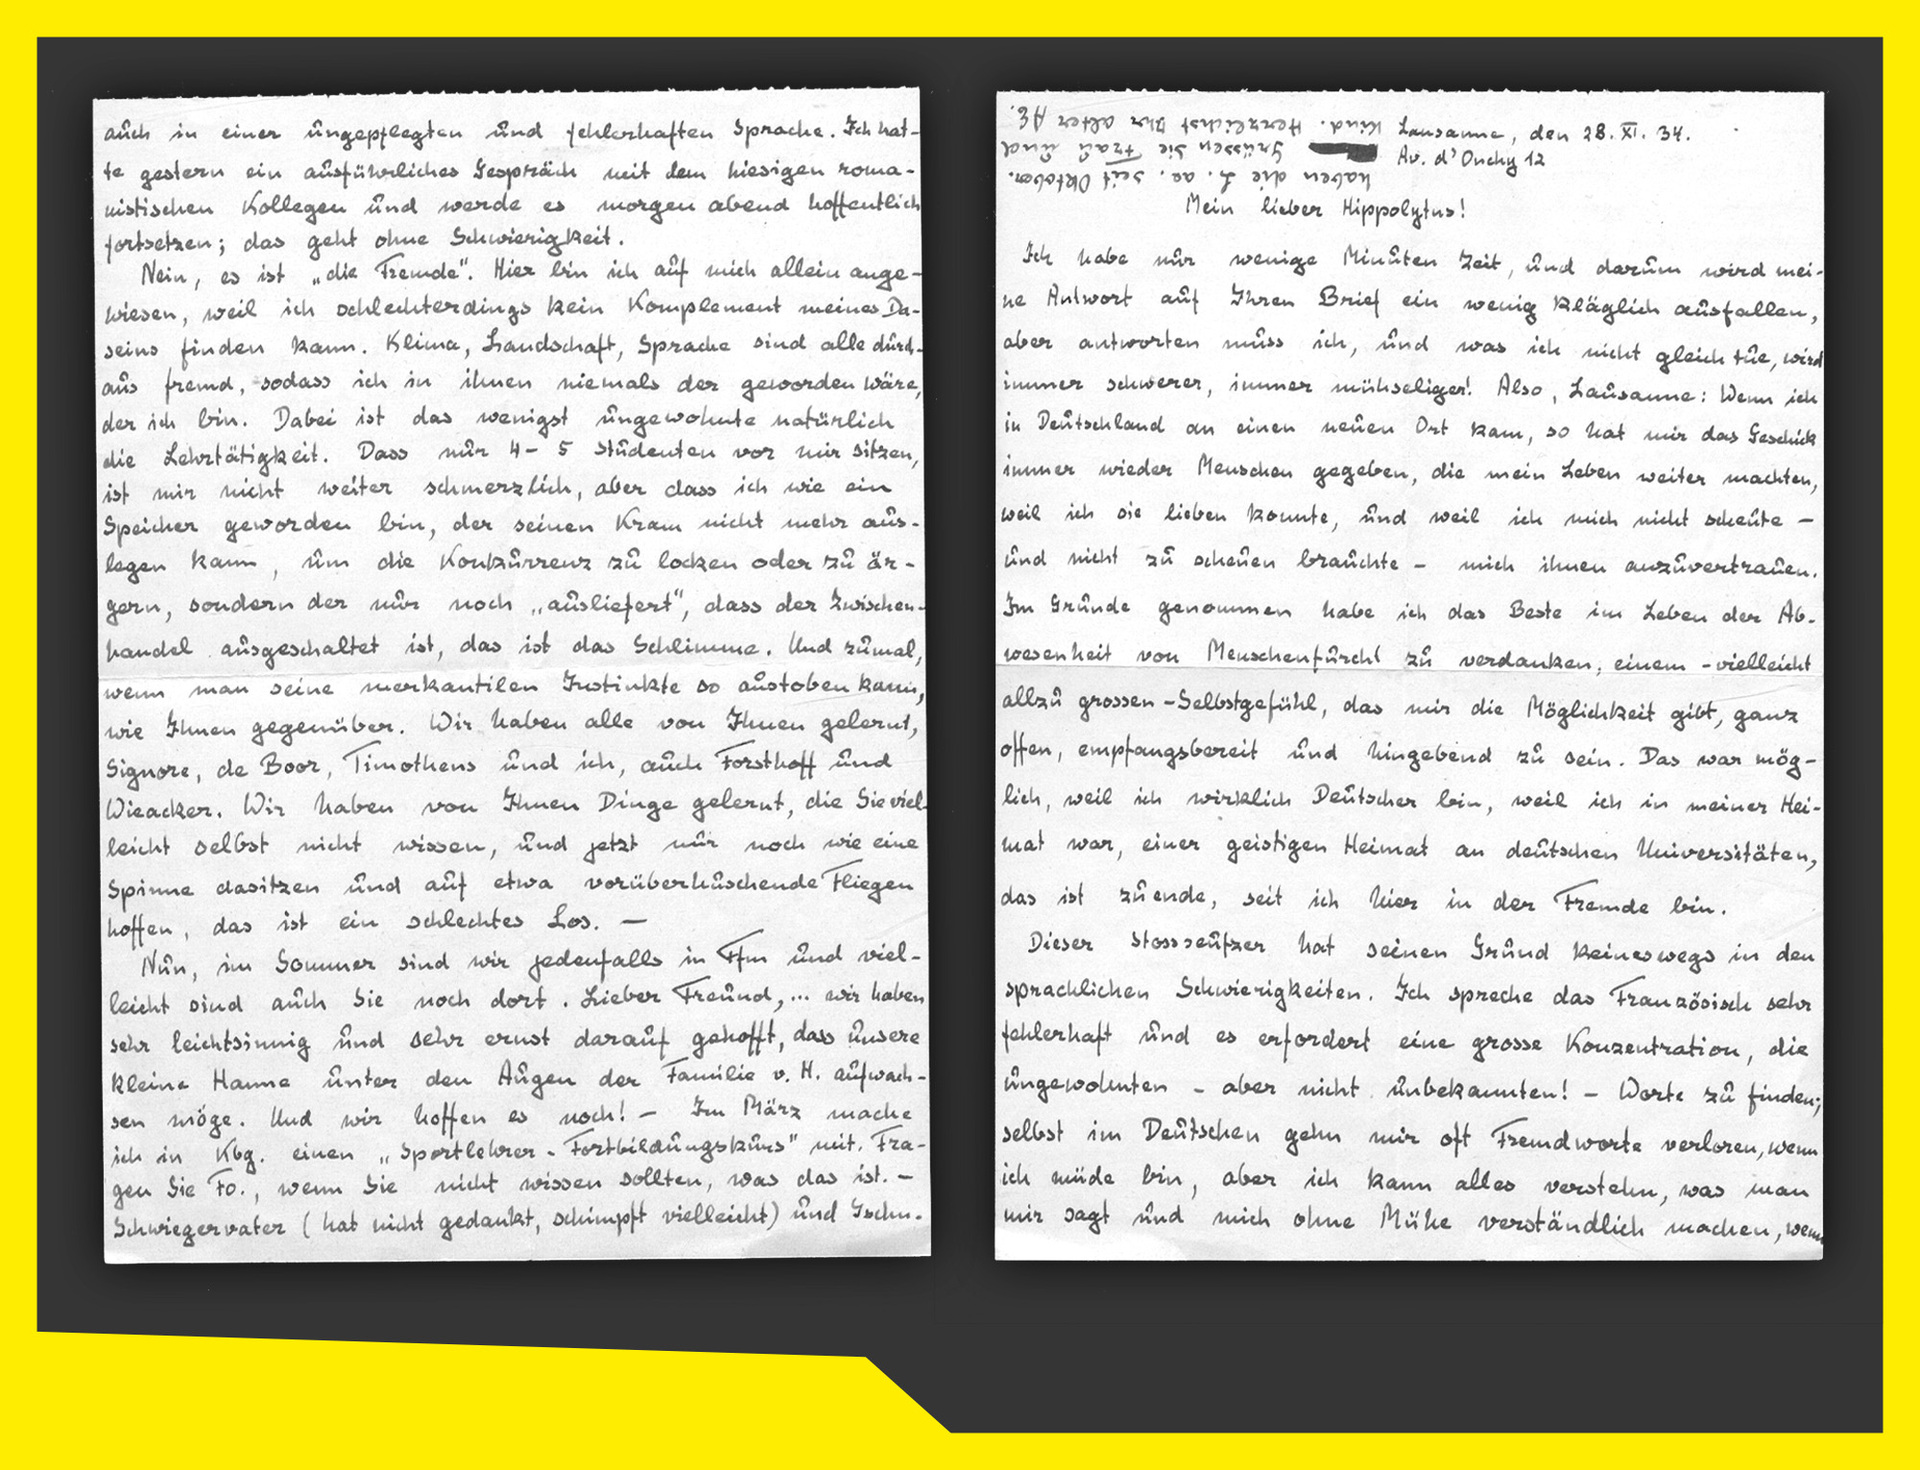 Lausanne, den 28. XI. 34.
Av. d'Ouchy 12
Mein lieber Hippolytus!
Ich habe nur wenige Minuten Zeit, und darum wird mei-
ne Antwort auf Ihren Brief ein wenig kläglich ausfallen,
aber antworten muss ich, und was ich nicht gleich tue, wird
immer schwerer, immer mühseliger! Also, Lausanne: Wenn ich
in Deutschland an einen neuen Ort kam, so hat mir das Geschick
immer wieder Menschen gegeben, die mein Leben weiter machten,
weil ich sie lieben konnte, und weil ich mich nicht scheute –
und nicht zu scheuen brauchte – mich ihnen anzuvertrauen.
Im Grunde genommen habe ich das Beste im Leben der Ab-
wesenheit von Menschenfurcht zu verdanken, einem – vielleicht
allzu grossen – Selbstgefühl, das mir die Möglichkeit gibt, ganz
offen, empfangsbereit und hingebend zu sein. Das war mög-
lich, weil ich wirklich Deutscher bin, weil ich in meiner Hei-
mat war, einer geistigen Heimat an deutschen Universitäten,
das ist zuende, seit ich hier in der Fremde bin.
Dieser Stossseufzer hat seinen Grund keineswegs in den
sprachlichen Schwierigkeiten. Ich spreche das Französisch sehr
fehlerhaft und es erfordert eine grosse Konzentration, die
ungewohnten – aber nicht unbekannten! – Worte zu finden;
selbst im Deutschen gehn mir oft Fremdworte verloren, wenn
ich müde bin, aber ich kann alles verstehn, was man
mir sagt und mich ohne Mühe verständlich machen, wenn
auch in einer ungepflegten und fehlerhaften Sprache. Ich hat-
te gestern ein ausführliches Gespräch mit dem hiesigen roma-
nistischen Kollegen und werde es morgen abend hoffentlich
fortsetzen; das geht ohne Schwierigkeit.
Nein, es ist „die Fremde". Hier bin ich auf mich allein ange-
wiesen, weil ich schlechterdings kein Komplement meines Da-
seins finden kann. Klima, Landschaft, Sprache sind alle durch-
aus fremd, sodass ich in ihnen niemals der geworden wäre,
der ich bin. Dabei ist das wenigst ungewohnte natürlich
die Lehrtätigkeit. Dass nur 4 – 5 Studenten vor mir sitzen,
ist mir nicht weiter schmerzlich, aber dass ich wie ein
Speicher geworden bin, der seinen Kram nicht mehr aus-
legen kann, um die Konkurrenz zu locken oder zu är-
gern, sondern der nur noch „ausliefert", dass der Zwischen-
handel ausgeschaltet ist, das ist das Schlimme. Und zumal,
wenn man seine merkantilen Instinkte so austoben kann,
wie Ihnen gegenüber. Wir haben alle von Ihnen gelernt,
Signore, de Boor, Timotheus und ich, auch Forsthoff und
Wieacker. Wir haben von Ihnen Dinge gelernt, die Sie viel-
leicht selbst nicht wissen, und jetzt nur noch wie eine
Spinne dasitzen und auf etwa vorüberhuschende Fliegen
hoffen, das ist ein schlechtes Los. –
Nun, im Sommer sind wir jedenfalls in Ffm und viel-
leicht sind auch Sie noch dort. Lieber Freund, ... wir haben
sehr leichtsinnig und sehr ernst darauf gehofft, dass unsere
kleine Hanne unter den Augen der Familie v. H. aufwach-
sen möge. Und wir hoffen es noch! – Im März mache
ich in Kbg. einen „Sportlehrer - Fortbildungskurs" mit. Fra-
gen Sie Fo., wenn Sie nicht wissen sollten, was das ist. –
Schwiegervater (hat nicht gedankt, schimpft vielleicht) und Gschw.
haben die L. ac. seit Oktober.
Grüssen Sie Frau und
Kind. Herzlichst Ihr alter AE.